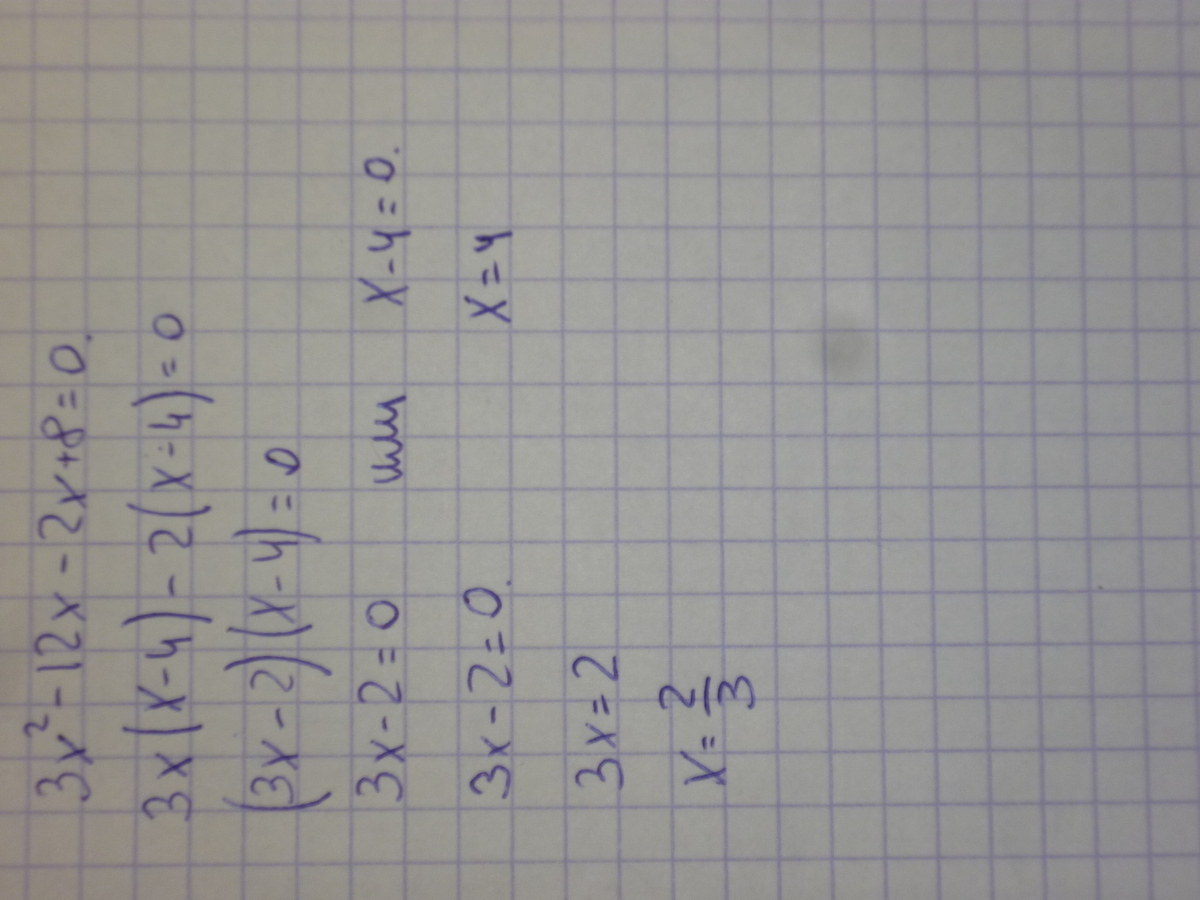 3x² - 12x - 2x + 8 = 0.
3x(x-4) - 2(x-4) = 0
(3x-2)(x-4) = 0
3x - 2 = 0 или x - 4 = 0.
3x - 2 = 0. x = 4
3x = 2
x = 2/3